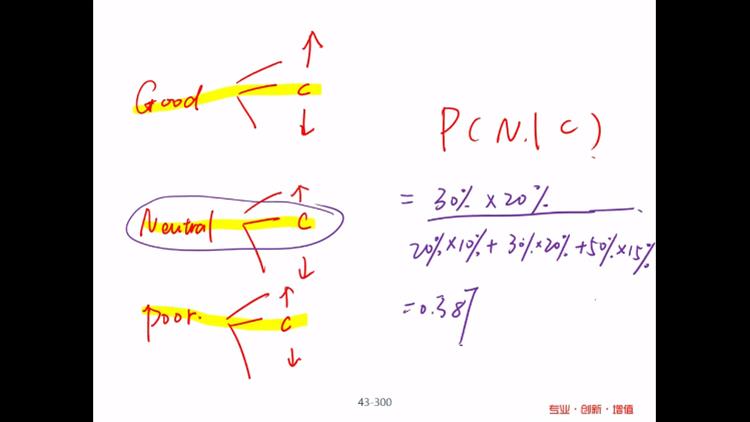 ↑
Good C
↓
P(N.|C)
↑
Neutral C
↓
= 30% × 20%
20%×10% + 30%×20% + 50%×15%
=0.387
↑
Poor. C
↓
43-300
专业·创新·增值